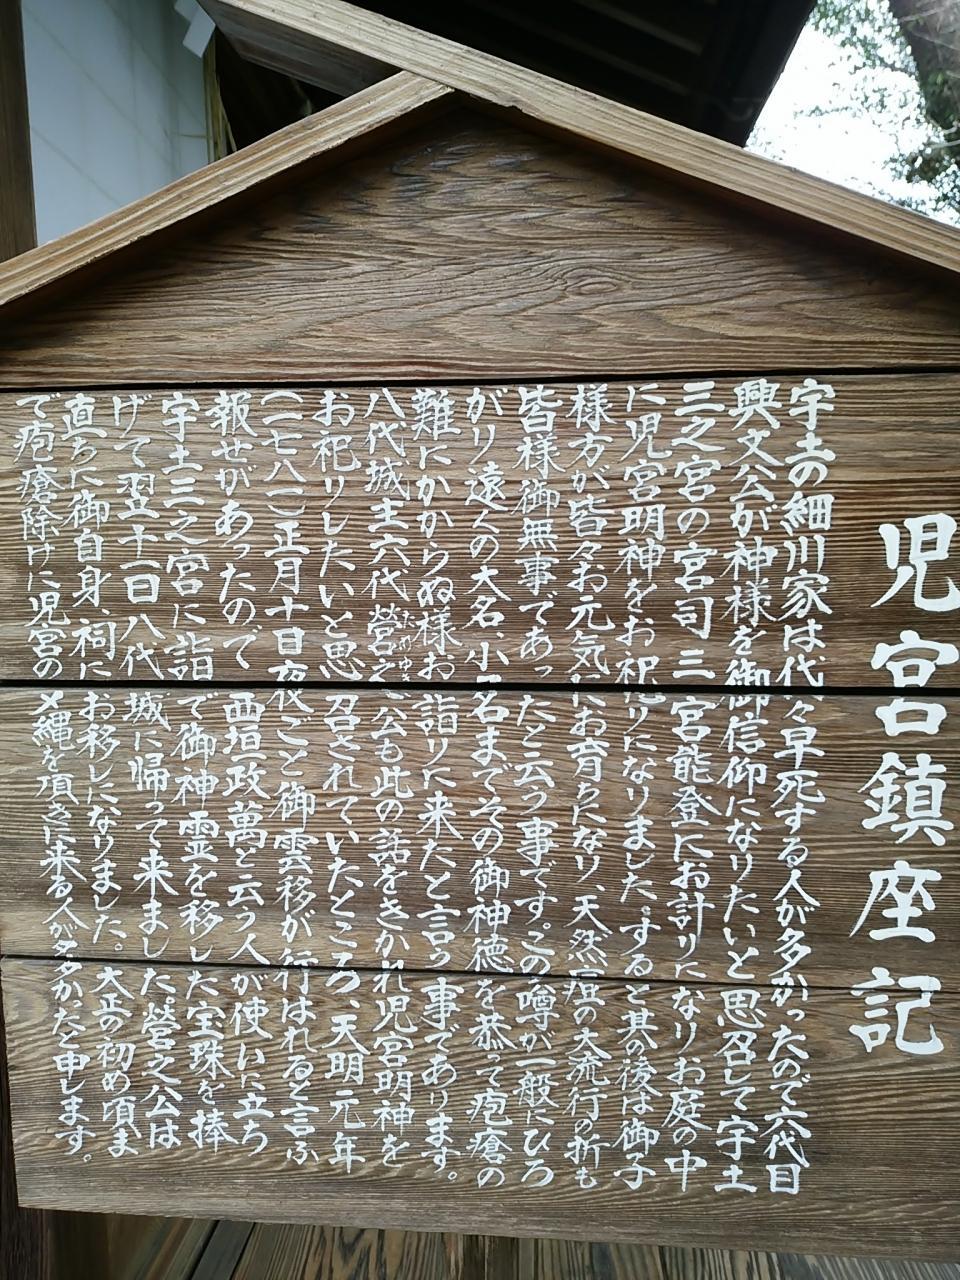 児宮鎮座記
宇土の細川家は代々早死する人が多かったので六代目
興文公が神様を御信仰になりたいと思召して宇土
三之宮の宮司三宮能登にお計りになりお庭の中
に児宮明神をお祀りになりました。すると其の後は御子
様方が皆々お元気にお育ちになり、天然痘の大流行の折も
皆様御無事であったと云う事です。この噂が一般にひろ
がり遠くの大名、小名までその御神徳を慕って疱瘡の
難にかからぬ様お詣りに来たと言う事であります。
八代城主六代營之公も此の話をきかれ児宮明神を
お祀りしたいと思召されていたところ、天明元年
(一七八一)正月十日夜ごと御霊移が行はれると言ふ
報せがあったので西垣政萬と云う人が使いに立ち
宇土三之宮に詣で御神霊を移した宝珠を捧
げて翌十一日八代城に帰って来ました。營之公は
直ちに御自身、祠にお移しになりました。大正の初め頃ま
で疱瘡除けに児宮の〆縄を頂きに来る人が多かったと申します。